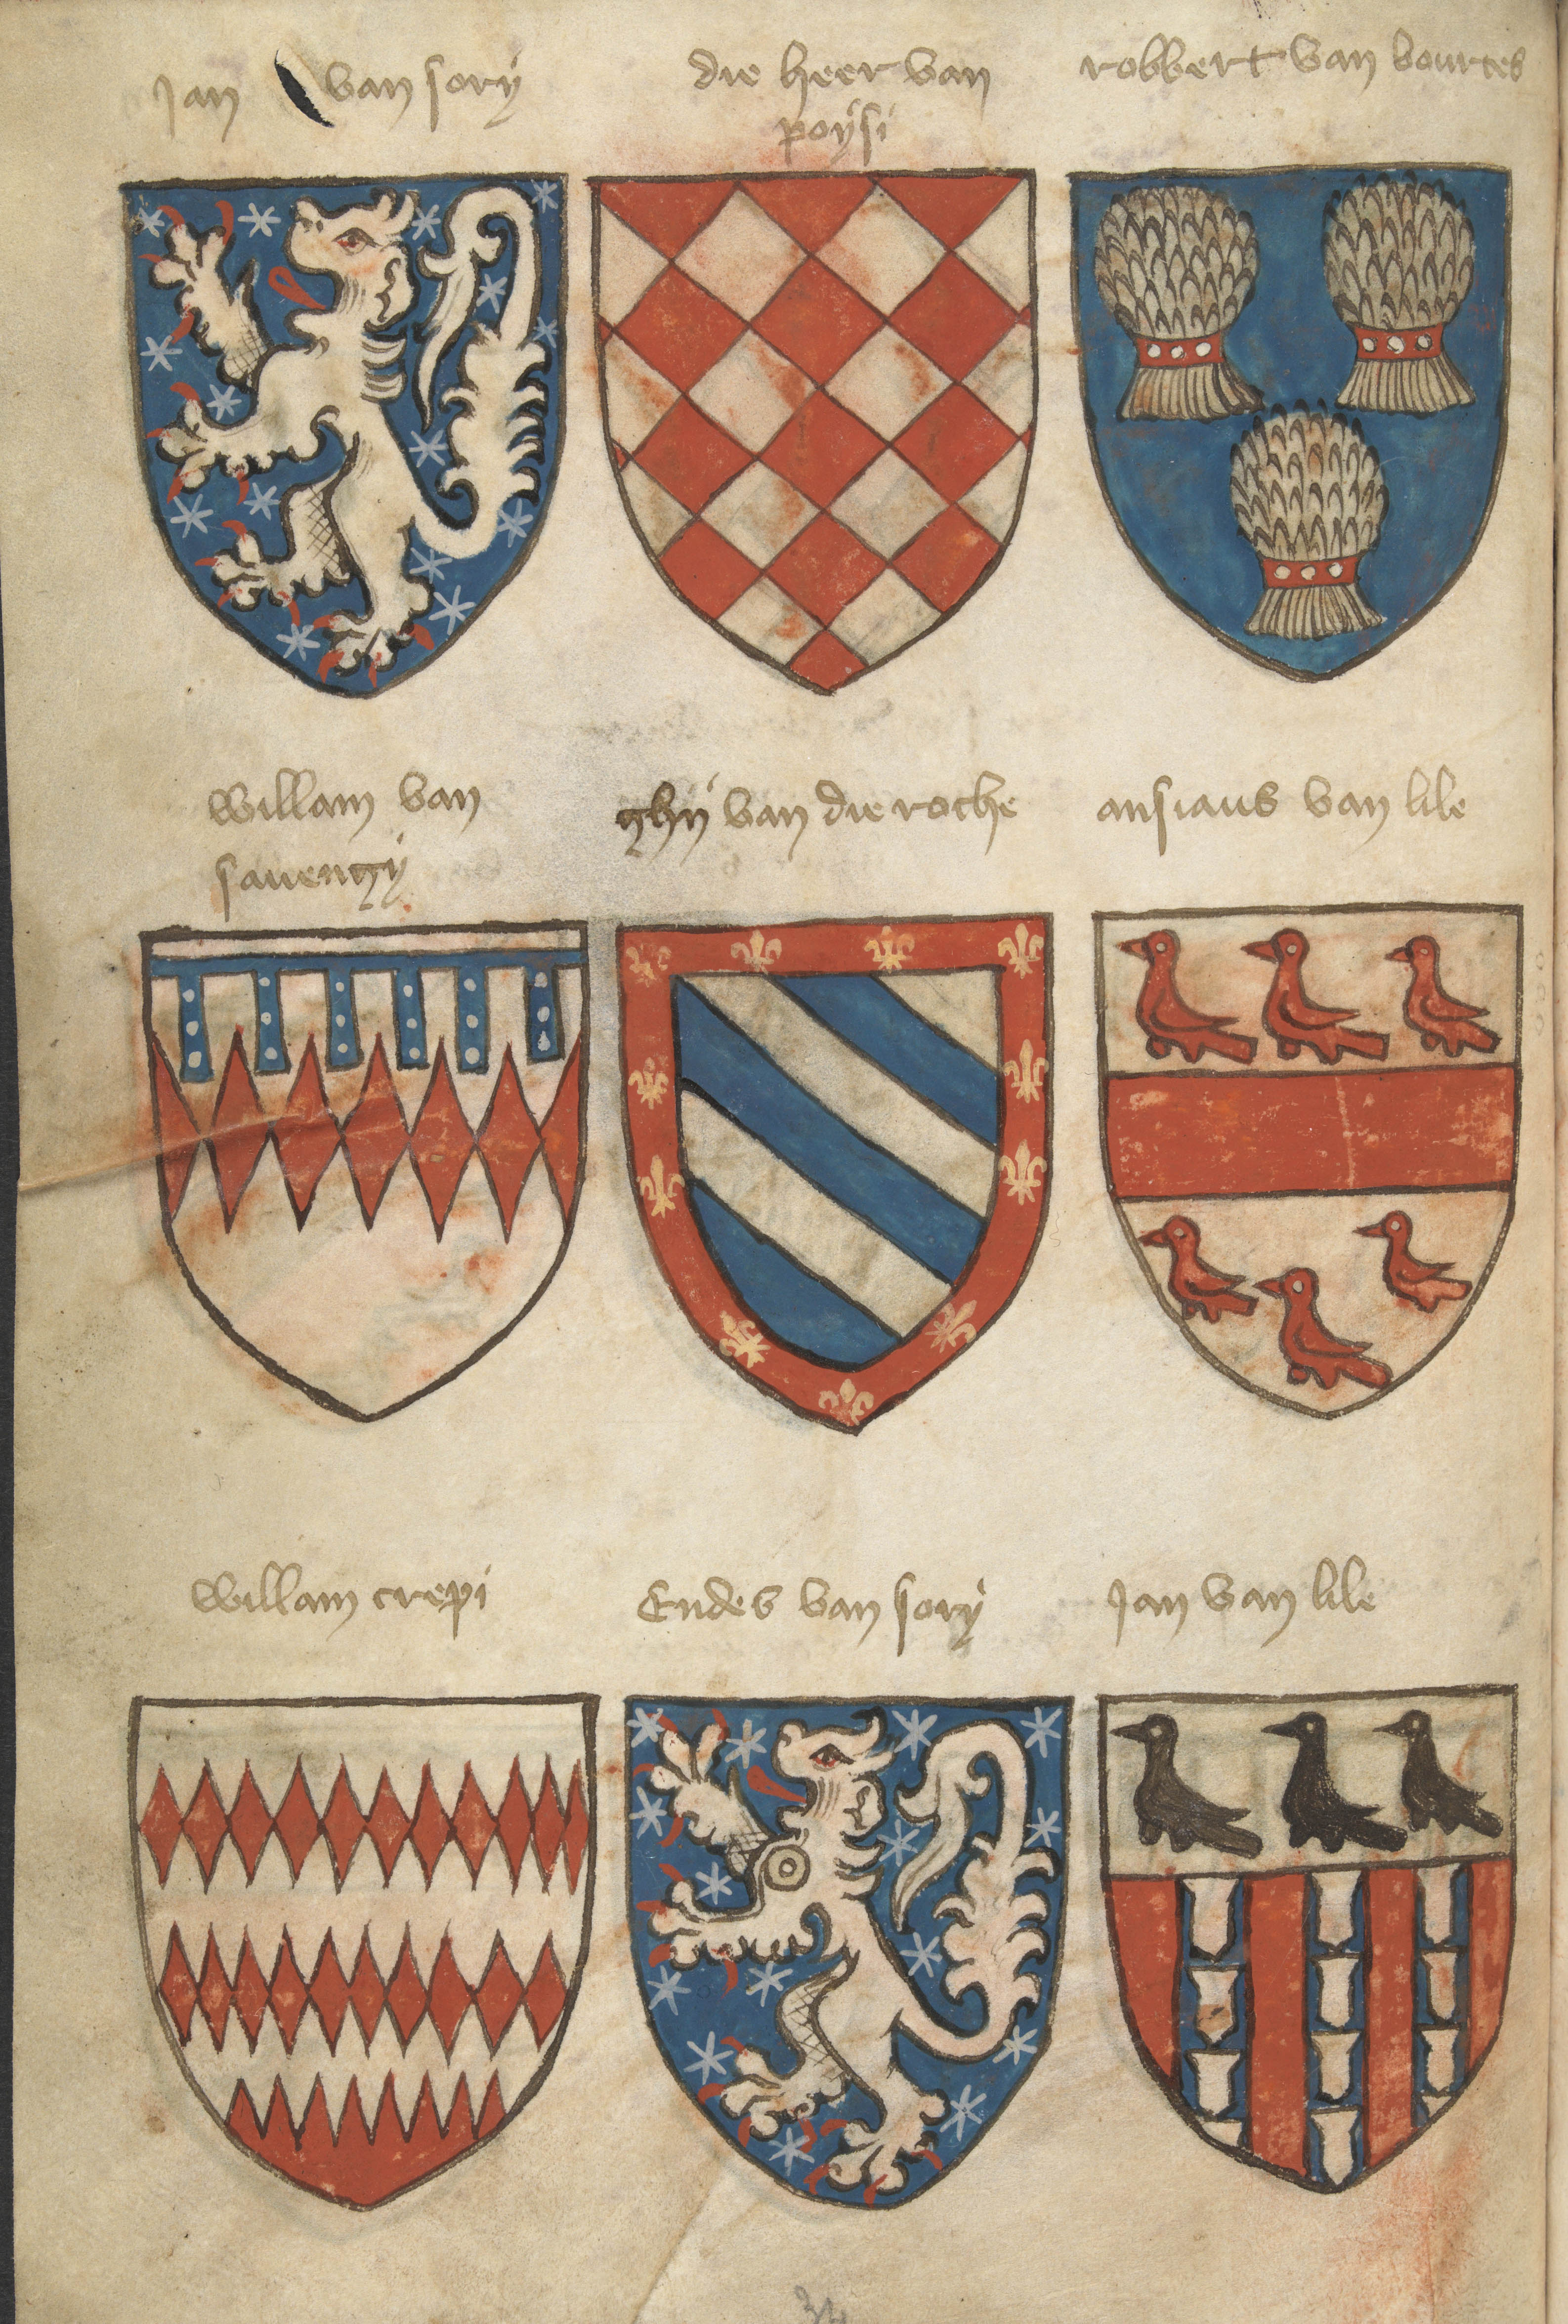 Jan van sory
die heer van
poysi
robbert van bources
willam van
sauengy
ghy van die roche
ansiaus van lile
willam crepi
Endes van sory
Jan van lile